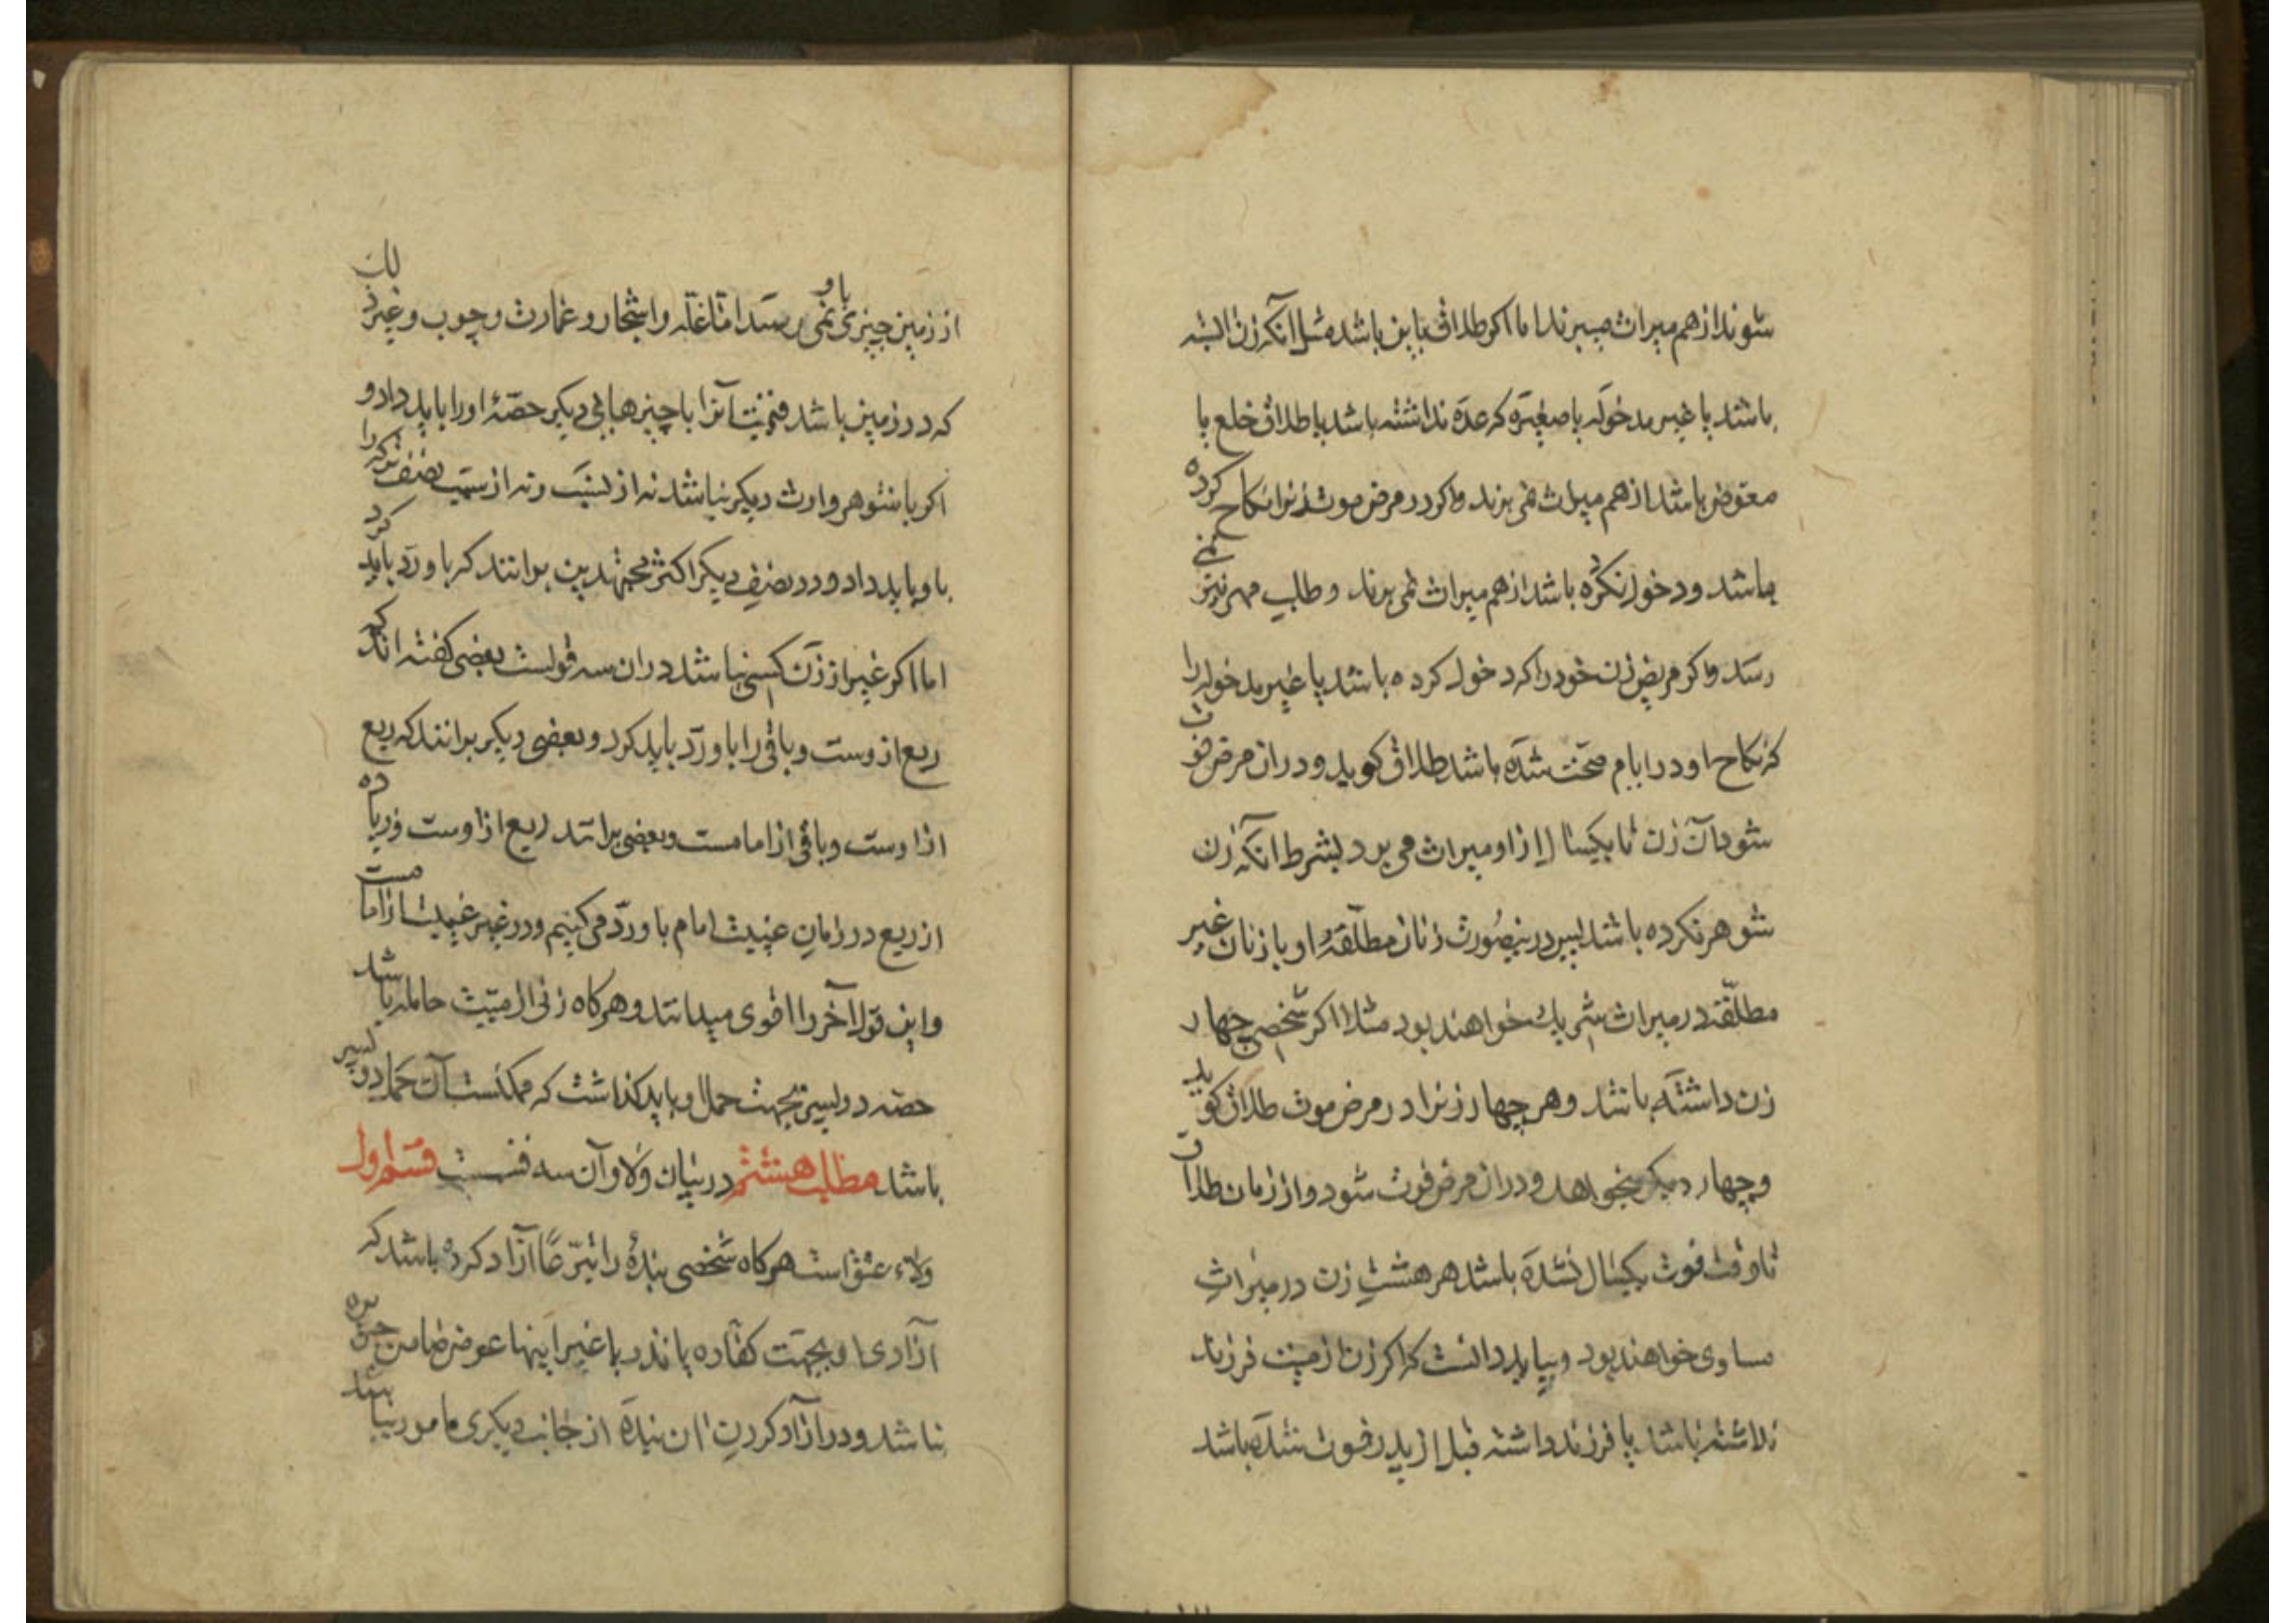 شوند از هم میراث میبرند اما اکر طلاق باین باشد مثل انکه زن یائسه
باشد یا غیر مدخوله یا صغیره که عده نداشته باشد یا طلاق خلع یا
معوض باشد از هم میراث نمی برند و اکر در مرض موت زنرا نکاح کرده
باشد و دخول نکرده باشد از هم میراث نمی برند و طلب مهر نیز نمی
رسد و اکر مریض زن خود را که دخول کرده باشد یا غیر مدخوله را
که نکاح او در ایام صحت شده باشد طلاق کوید و در ان مرض فوت
شود آن زن تا یکسال از او میراث می برد بشرط آنکه زن
شوهر نکرده باشد پس درینصورت زنان مطلقهٔ او با زنان غیر
مطلقه در میراث شریک خواهند بود مثلا اکر شخصی چهار
زن داشته باشد و هر چهار زنرا در مرض موت طلاق کوید
و چهار دیکر بخواهد و در ان مرض فوت شود و از زمان طلاق
تا وقت فوت یکسال نشده باشد هر هشت زن در میراث
مساوی خواهند بود و بباید دانست که اکر زن از میت فرزند
نداشته باشد یا فرزند داشته قبل از پدر فوت شده باشد
از زمین چیزی باو نمی رسد اما غله و اشجار و عمارت و چوب و غیر ذلک
که در زمین باشد قیمت آنرا با چیزهایی دیکر حصهٔ او را باید داد و
اکر با شوهر وارث دیکر نباشد نه از نسب و نه از سبب نصف ترکه را
باو باید داد و در نصف دیکر اکثر مجتهدین برانند که باو رد باید کرد
اما اکر غیر از زن کسی نباشد در ان سه قولست بعضی کفته اند که
ربع از وست و باقی را باو رد باید کرد و بعضی دیکر برانند که ربع
از اوست و باقی از امامست و بعضی برانند ربع از اوست و زیاده
از ربع در زمان غیبت امام باو رد می کنیم و در غیر غیبت از امامست
و این قول آخر را اقوی میدانند و هرکاه زنی از میت حامله باشد
حصه دو پسر بجهت حمل او باید کذاشت که ممکنست آن حمل دو پسر
باشد مطلب هشتم در بیان ولا و آن سه قسمت قسم اول
ولاء عتق است هرکاه شخصی بندهٔ را تبرعا آزاد کرده باشد که
آزادی او بجهت کفاره یا نذر یا غیر اینها عوض ضامن جریره
نباشد و در آزاد کردن ان بنده از جانب دیکری مامور نباشد